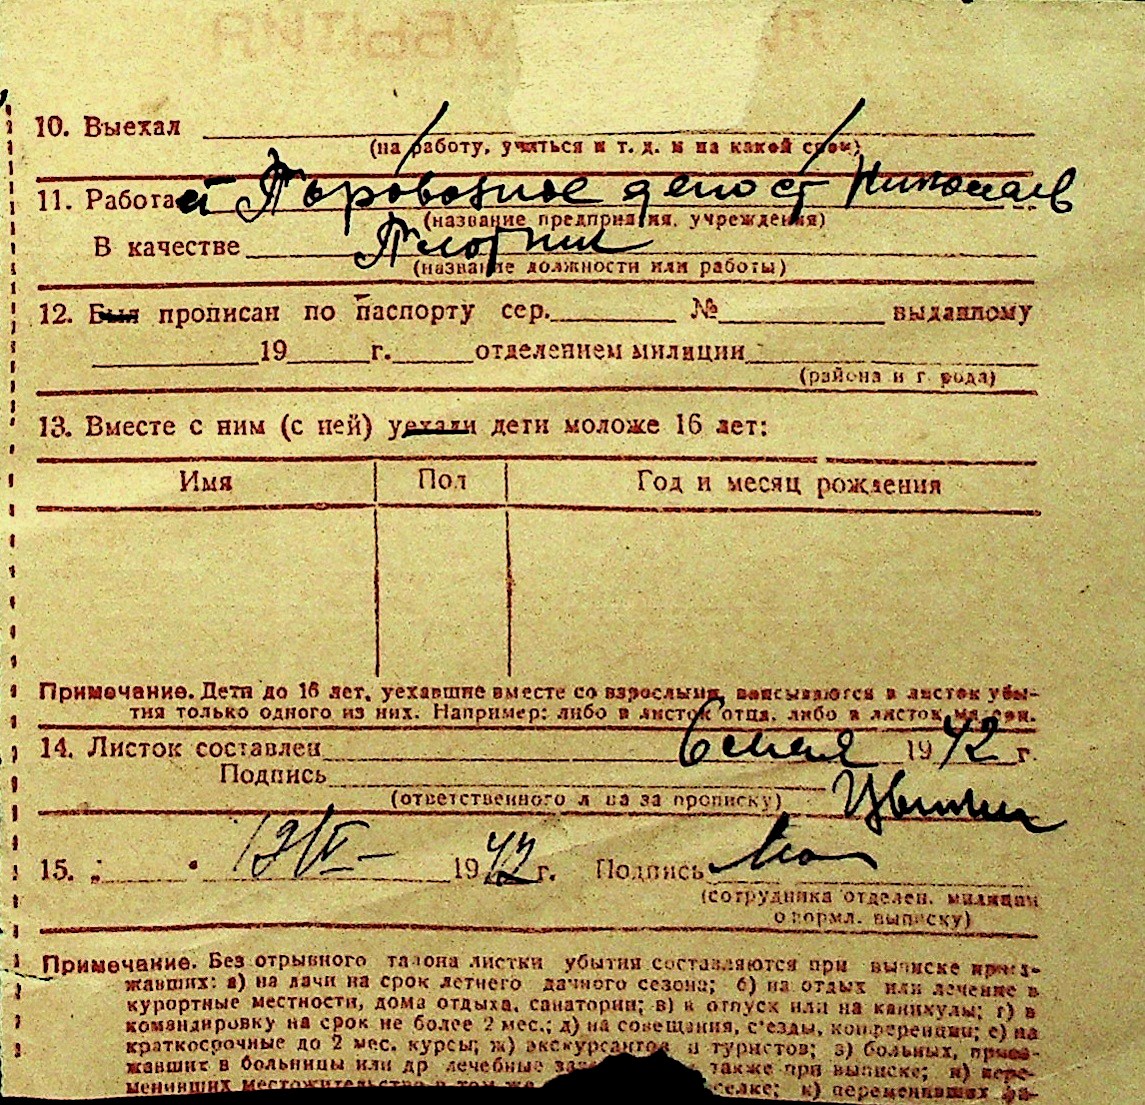 10. Выехал
(на работу, учиться и т. д. и на какой срок)
11. Работает Паровозное депо ст Николаев
(название предприятия, учреждения)
В качестве Плотник
(название должности или работы)
12. Был прописан по паспорту сер. № выданному
19 г. отделением милиции
(района и г рода)
13. Вместе с ним (с ней) уехали дети моложе 16 лет:
Имя Пол Год и месяц рождения
Примечание. Дети до 16 лет, уехавшие вместе со взрослыми, вписываются в листок убы-
тия только одного из них. Например: либо в листок отца, либо в листок матери.
14. Листок составлен 6 мая 1942 г.
Подпись
(ответственного л ца за прописку)
15. „ " 12/VI– 1942 г. Подпись
(сотрудника отделен. милиции
оформл. выписку)
Примечание. Без отрывного талона листки убытия составляются при выписке приез-
жавших: а) на дачи на срок летнего дачного сезона; б) на отдых или лечение в
курортные местности, дома отдыха, санатории; в) в отпуск или на каникулы; г) в
командировку на срок не более 2 мес.; д) на совещания, с'езды, конференции; е) на
краткосрочные до 2 мес. курсы; ж) экскурсантов и туристов; з) больных, приез-
жавших в больницы или др лечебные также при выписке; и) пере-
менивших местожительство в том же селке; к) переменивших фа-